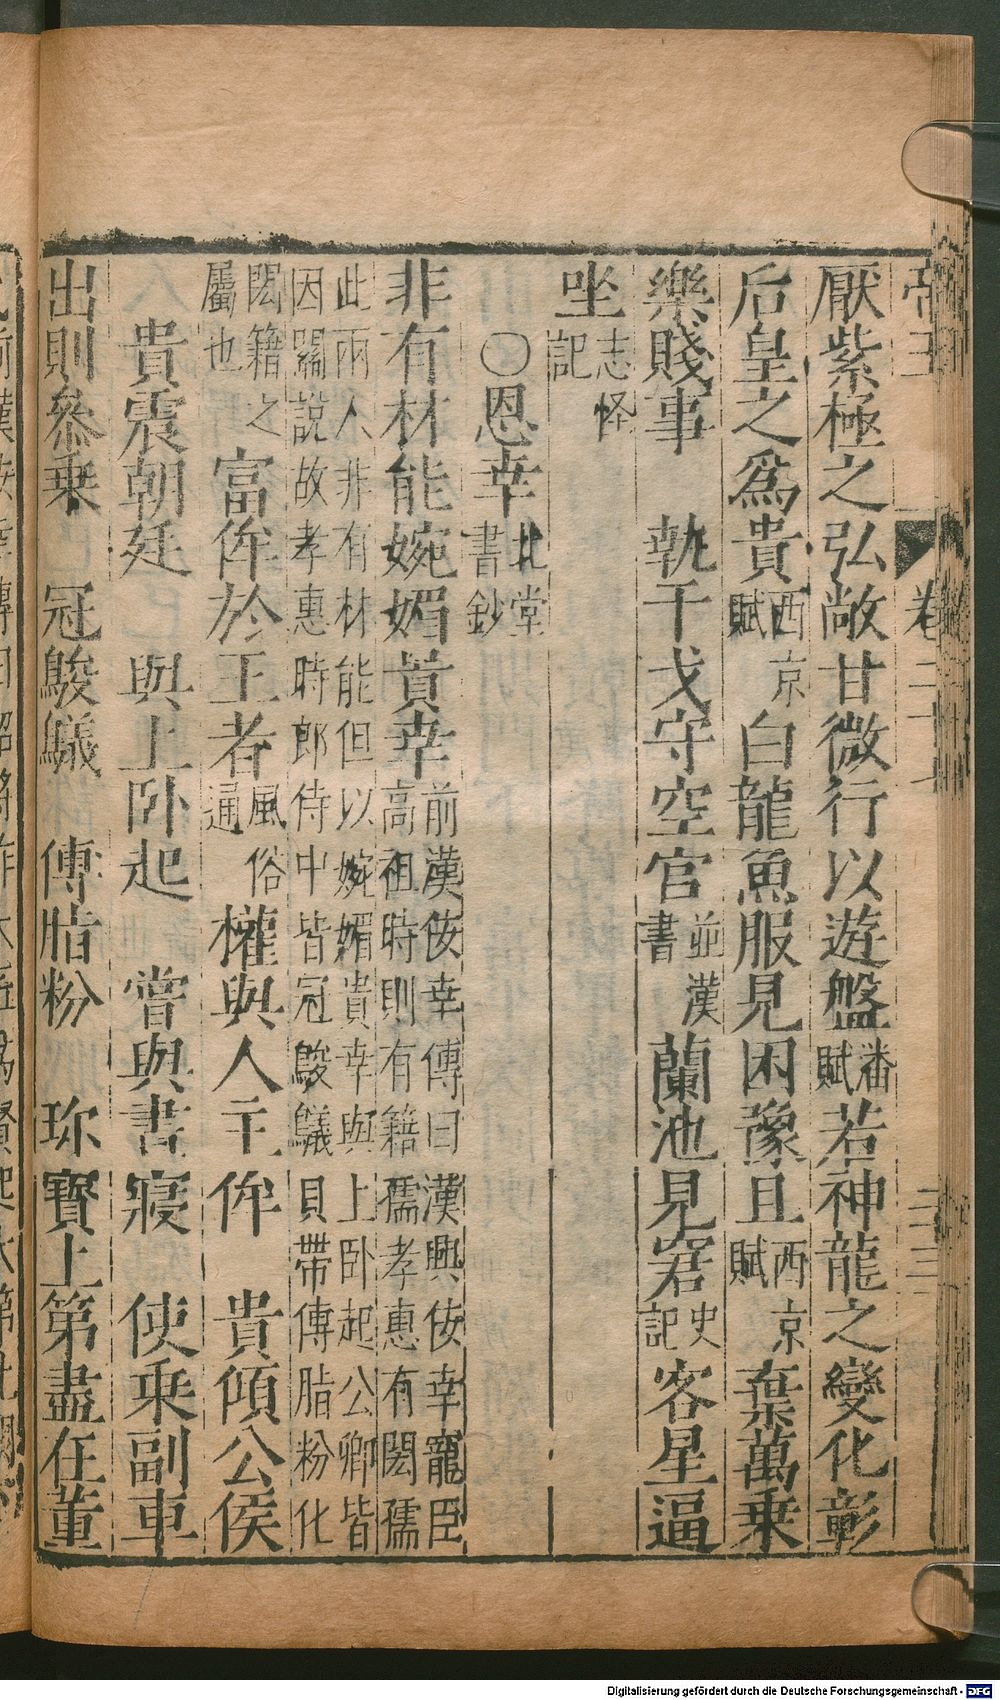 厭紫極之弘敞甘微行以遊盤潘賦若神龍之變化彰
后皇之爲貴西京賦白龍魚服見困豫且西京賦棄萬乗
樂賤事 執干戈守空宮並漢書蘭池見窘史記客星逼
坐志怪記
〇恩幸北堂書鈔
非有材能婉媚貴幸前漢佞幸傳曰漢興佞幸寵臣高祖時則有籍孺孝惠有閎孺
此兩人非有材能但以婉媚貴幸與上卧起公卿皆因關說故孝惠時郎侍中皆冠鵔鸃貝帶傅脂粉化
閎籍之屬也 富侔於王者風俗通 權與人主侔 貴傾公侯
貴震朝廷 與上卧起 嘗與晝寢 使乗副車
出則參乗 冠鵔鸃 傅脂粉 珍寶上第盡在董
帝王 卷二十七 二三
Digitalisierung gefördert durch die Deutsche Forschungsgemeinschaft - DFG